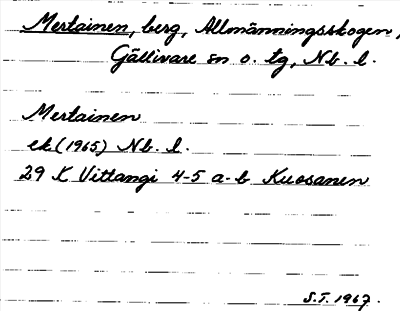 Mertainen, berg, Allmänningsskogen,
Gällivare sn o. tg, Nb. l.
Mertainen
ek (1965) Nb. l.
29 K Vittangi 4-5 a-b Kuosanen
S.T. 1967.